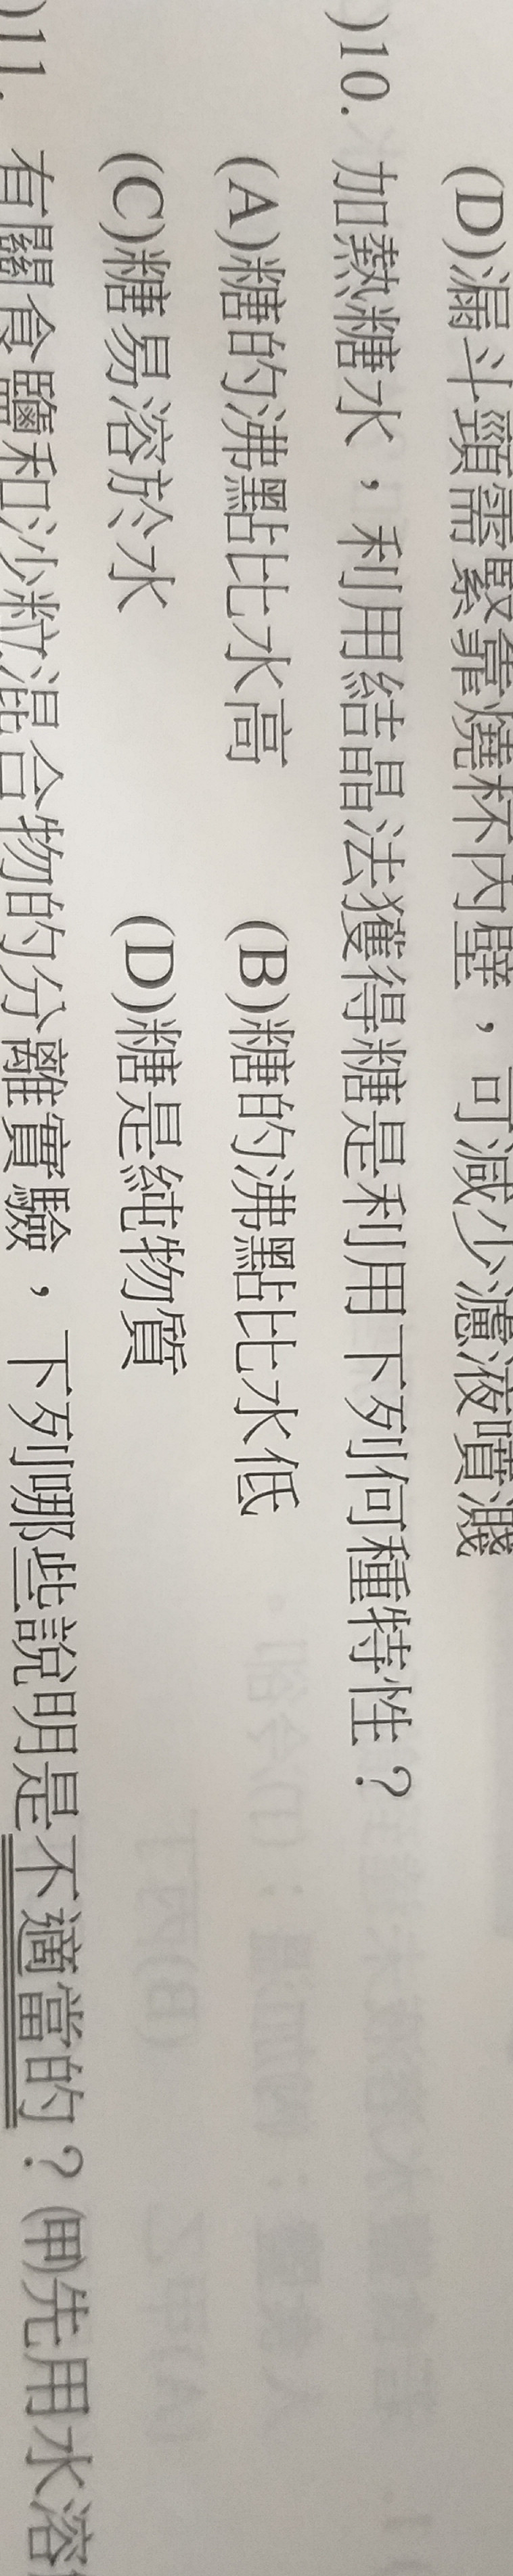 (D)漏斗頸需緊靠燒杯內壁，可減少濾液噴濺
)10. 加熱糖水，利用結晶法獲得糖是利用下列何種特性？
(A)糖的沸點比水高 (B)糖的沸點比水低
(C)糖易溶於水 (D)糖是純物質
)11. 有關食鹽和沙粒混合物的分離實驗，下列哪些說明是不適當的？(甲)先用水溶